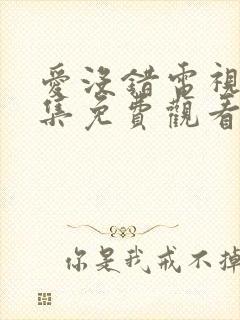 愛沒錯電視
集免費觀看
你是我戒不掉